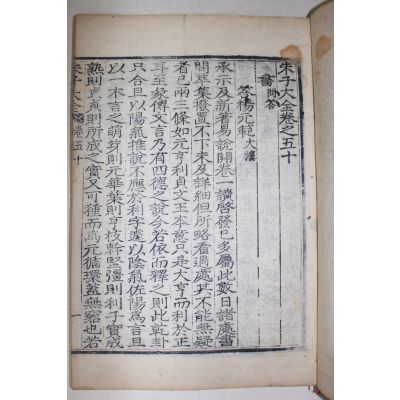 朱子大全卷之五十
書 問答
答楊元範大灋
承示及新著易說開卷一讀啓發已多屬此數日諸處書
問叢集撥置不下未及詳細但所略看過處其不能無疑
者已兩三條如元亨利貞文王本意只是大亨而利於正
耳至彖傳文言乃有四德之說今若依而釋之則此乾卦
只合且以陽氣推說不應於利字邊以陰氣佐陽爲言且
以一木言之萌芽則元華葉則亨枝幹堅彊則利子實成
熟則貞貞則所成之實又可種而爲元循環蓋無窮也若
朱子大全 卷五十
一